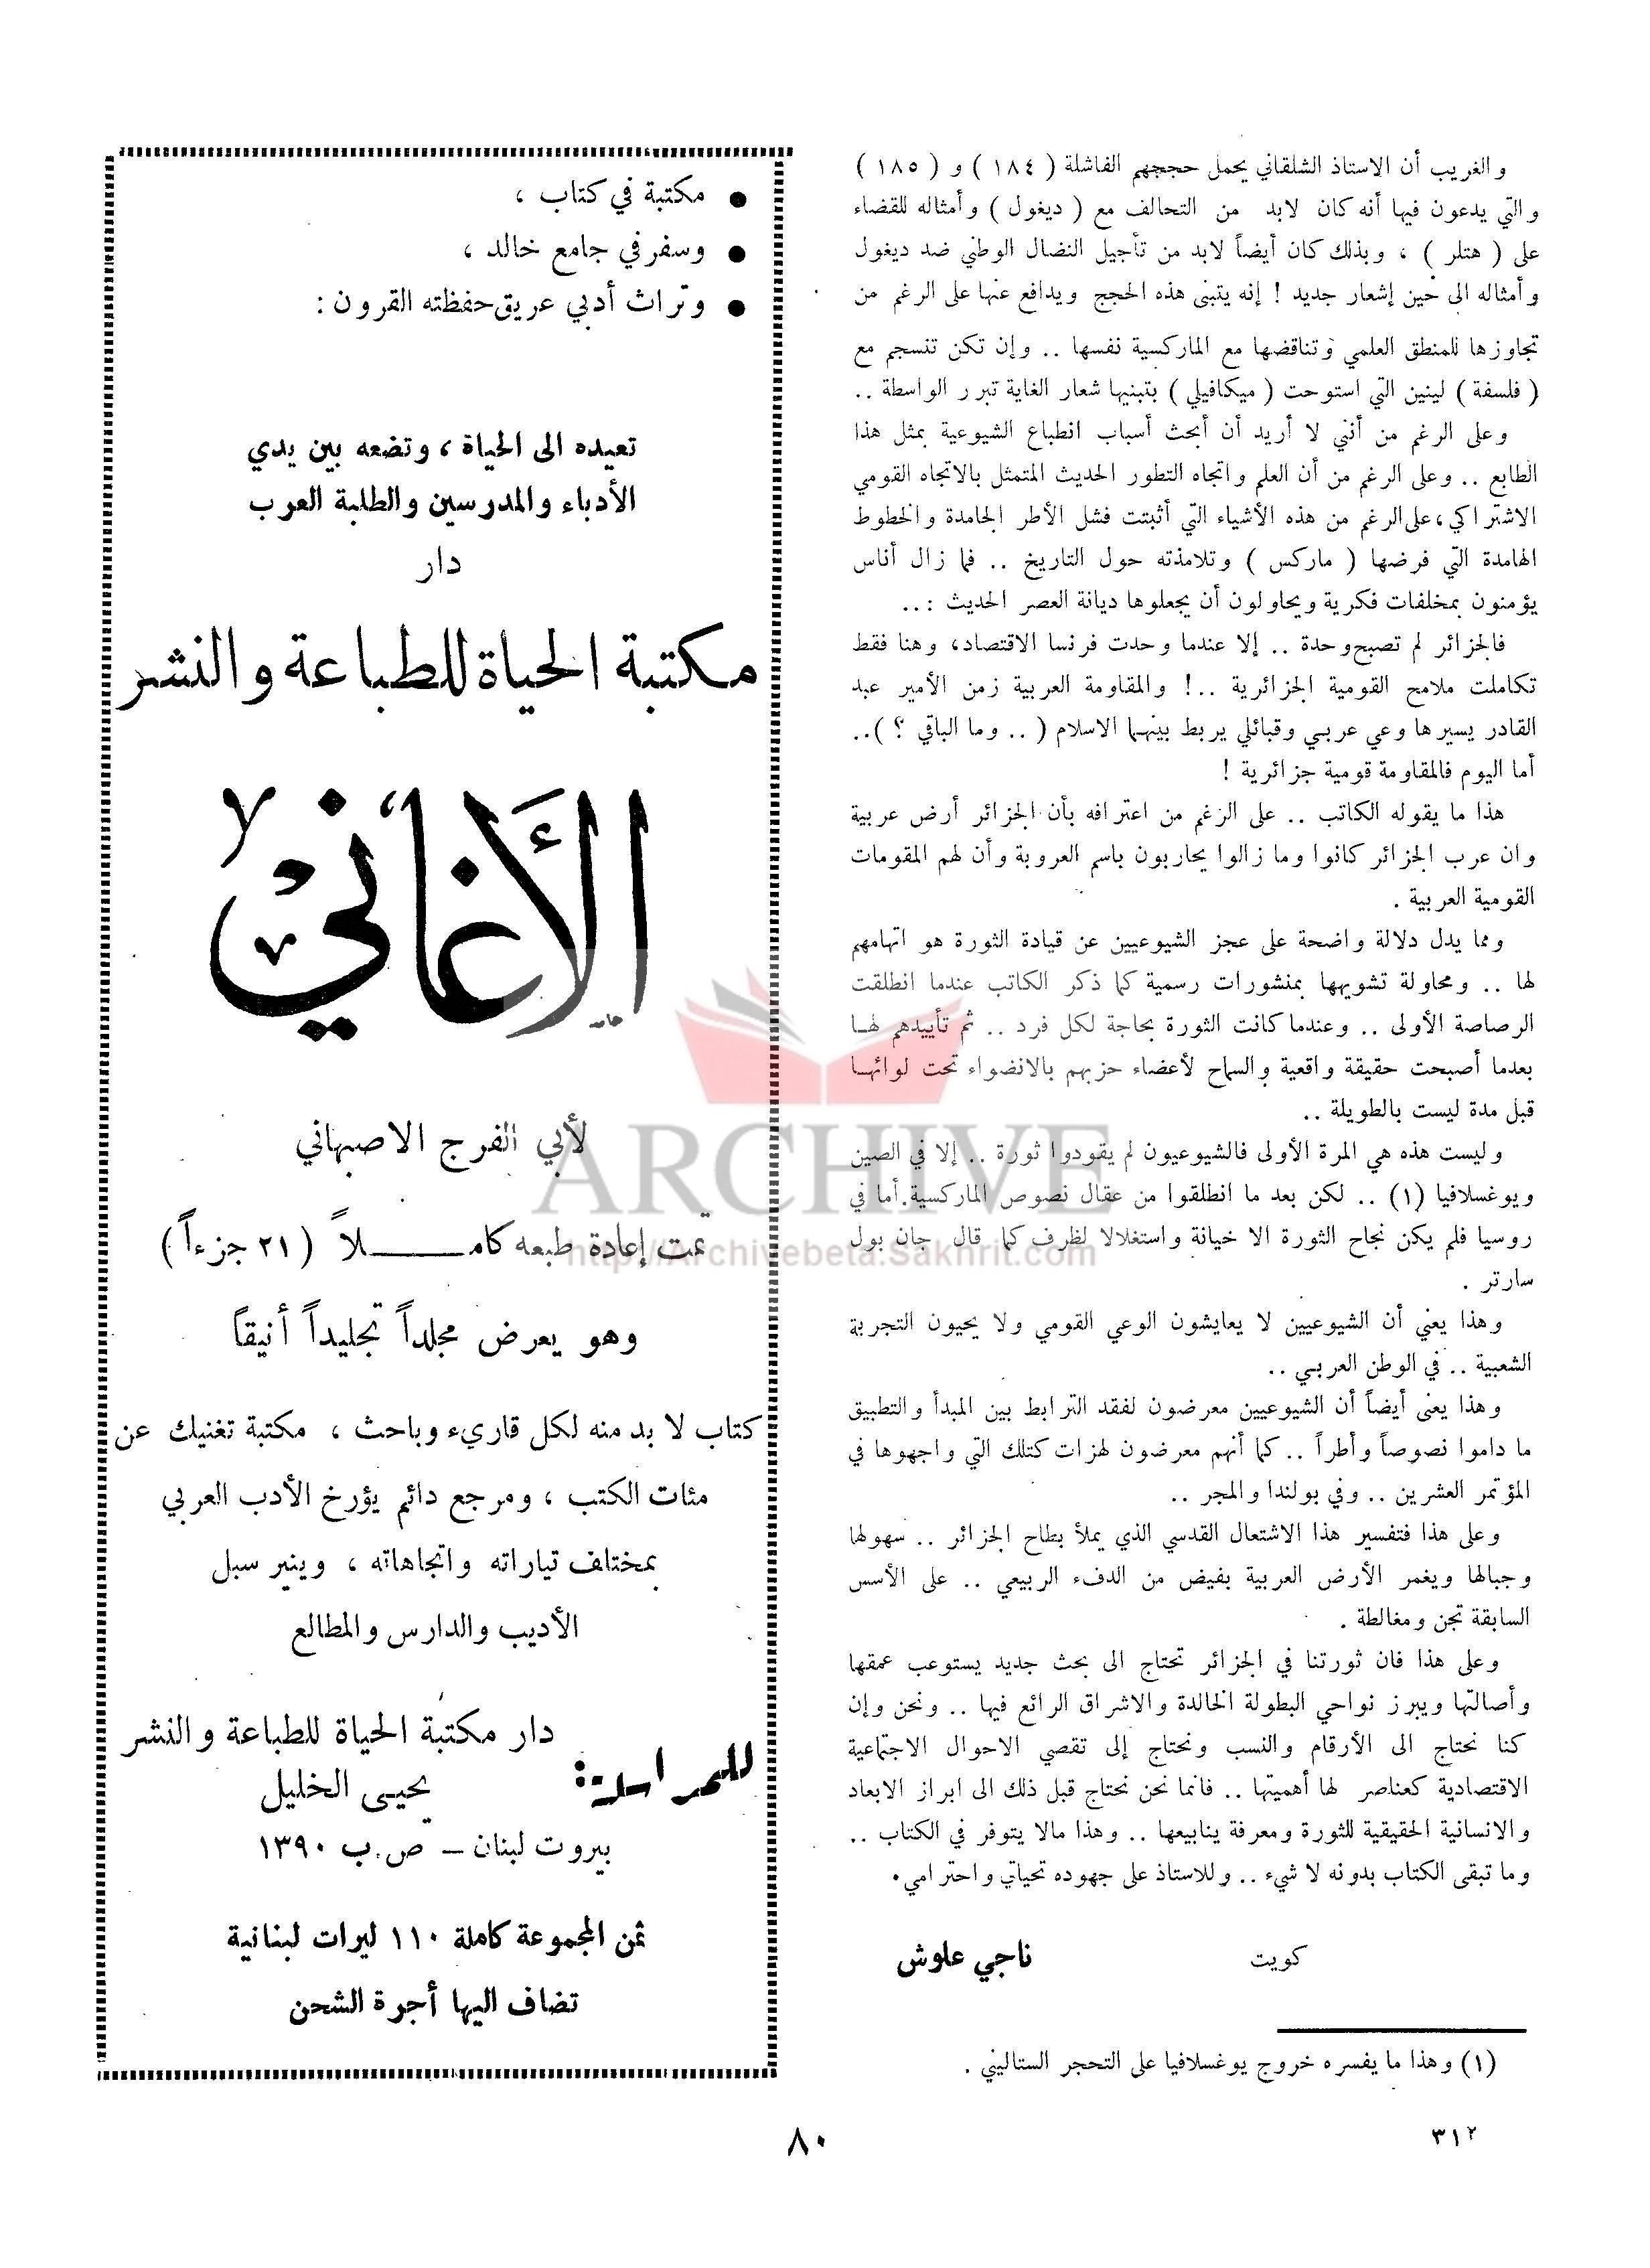 والغريب أن الاستاذ الشلقاني يحمل حججهم الفاشلة ( ١٨٤ ) و ( ١٨٥ )
والتي يدعون فيها أنه كان لابد من التحالف مع ( ديغول ) وأمثاله للقضاء
على ( هتلر ) ، وبذلك كان أيضاً لابد من تأجيل النضال الوطني ضد ديغول
وأمثاله الى حين إشعار جديد ! إنه يتبنى هذه الحجج ويدافع عنها على الرغم من
تجاوزها للمنطق العلمي وتناقضها مع الماركسية نفسها .. وإن تكن تنسجم مع
( فلسفة ) لينين التي استوحت ( ميكافيلي ) بتبنيها شعار الغاية تبرر الواسطة ..
وعلى الرغم من أنني لا أريد أن أبحث أسباب انطباع الشيوعية بمثل هذا
الطابع .. وعلى الرغم من أن العلم واتجاه التطور الحديث المتمثل بالاتجاه القومي
الاشتراكي ، على الرغم من هذه الأشياء التي أثبتت فشل الأطر الجامدة والخطوط
الهامدة التي فرضها ( ماركس ) وتلامذته حول التاريخ .. فما زال أناس
يؤمنون بمخلفات فكرية ويحاولون أن يجعلوها ديانة العصر الحديث : ..
فالجزائر لم تصبح وحدة .. إلا عندما وحدت فرنسا الاقتصاد ، وهنا فقط
تكاملت ملامح القومية الجزائرية ..! والمقاومة العربية زمن الأمير عبد
القادر يسيرها وعي عربي وقبائلي يربط بينهما الاسلام ( .. وما الباقي ؟ ) ..
أما اليوم فالمقاومة قومية جزائرية !
هذا ما يقوله الكاتب .. على الرغم من اعترافه بأن الجزائر أرض عربية
وان عرب الجزائر كانوا وما زالوا يحاربون باسم العروبة وأن لهم المقومات
القومية العربية .
ومما يدل دلالة واضحة على عجز الشيوعيين عن قيادة الثورة هو اتهامهم
لها .. ومحاولة تشويهها بمنشورات رسمية كما ذكر الكاتب عندما انطلقت
الرصاصة الأولى .. وعندما كانت الثورة بحاجة لكل فرد .. ثم تأييدهم لهـا
بعدما أصبحت حقيقة واقعية والسماح لأعضاء حزبهم بالانضواء تحت لوائهـا
قبل مدة ليست بالطويلة ..
وليست هذه هي المرة الأولى فالشيوعيون لم يقودوا ثورة .. إلا في الصين
ويوغسلافيا (١) .. لكن بعد ما انطلقوا من عقال نصوص الماركسية. أما في
روسيا فلم يكن نجاح الثورة الا خيانة واستغلالا لظرف كما قال جان بول
سارتر .
وهذا يعني أن الشيوعيين لا يعايشون الوعي القومي ولا يحيون التجربة
الشعبية .. في الوطن العربي ..
وهذا يعني أيضاً أن الشيوعيين معرضون لفقد الترابط بين المبدأ والتطبيق
ما داموا نصوصاً وأطراً .. كما أنهم معرضون لهزات كتلك التي واجهوها في
المؤتمر العشرين .. وفي بولندا والمجر ..
وعلى هذا فتفسير هذا الاشتعال القدسي الذي يملأ بطاح الجزائر .. سهولها
وجبالها ويغمر الأرض العربية بفيض من الدفء الربيعي .. على الأسس
السابقة تجن ومغالطة .
وعلى هذا فان ثورتنا في الجزائر تحتاج الى بحث جديد يستوعب عمقها
وأصالتها ويبرز نواحي البطولة الخالدة والاشراق الرائع فيها .. ونحن وإن
كنا نحتاج الى الأرقام والنسب ونحتاج إلى تقصي الاحوال الاجتماعية
الاقتصادية كعناصر لها أهميتها .. فانما نحن نحتاج قبل ذلك الى ابراز الابعاد
والانسانية الحقيقية للثورة ومعرفة ينابيعها .. وهذا مالا يتوفر في الكتاب ..
وما تبقى الكتاب بدونه لا شيء .. وللاستاذ على جهوده تحياتي واحترامي .
كويت ناجي علوش
(١) وهذا ما يفسره خروج يوغسلافيا على التحجر الستاليني .
مكتبة في كتاب ،
وسفر في جامع خالد ،
وتراث أدبي عريق حفظته القرون :
تعيده الى الحياة ، وتضعه بين يدي
الأدباء والمدرسين والطلبة العرب
دار
مكتبة الحياة للطباعة والنشر
الأغاني
لأبي الفرج الاصبهاني
تمت إعادة طبعه كامــــلاً ( ٢١ جزءاً )
وهو يعرض مجلداً تجليداً أنيقاً
كتاب لا بد منه لكل قاريء وباحث ، مكتبة تغنيك عن
مئات الكتب ، ومرجع دائم يؤرخ الأدب العربي
بمختلف تياراته واتجاهاته ، وينير سبل
الأديب والدارس والمطالع
للمراسلة :
دار مكتبة الحياة للطباعة والنشر
يحيى الخليل
بيروت لبنان – ص.ب ١٣٩٠
ثمن المجموعة كاملة ١١٠ ليرات لبنانية
تضاف اليها أجرة الشحن
ARCHIVE
http://Archivebeta.Sakhrit.com
٣١٢
٨٠